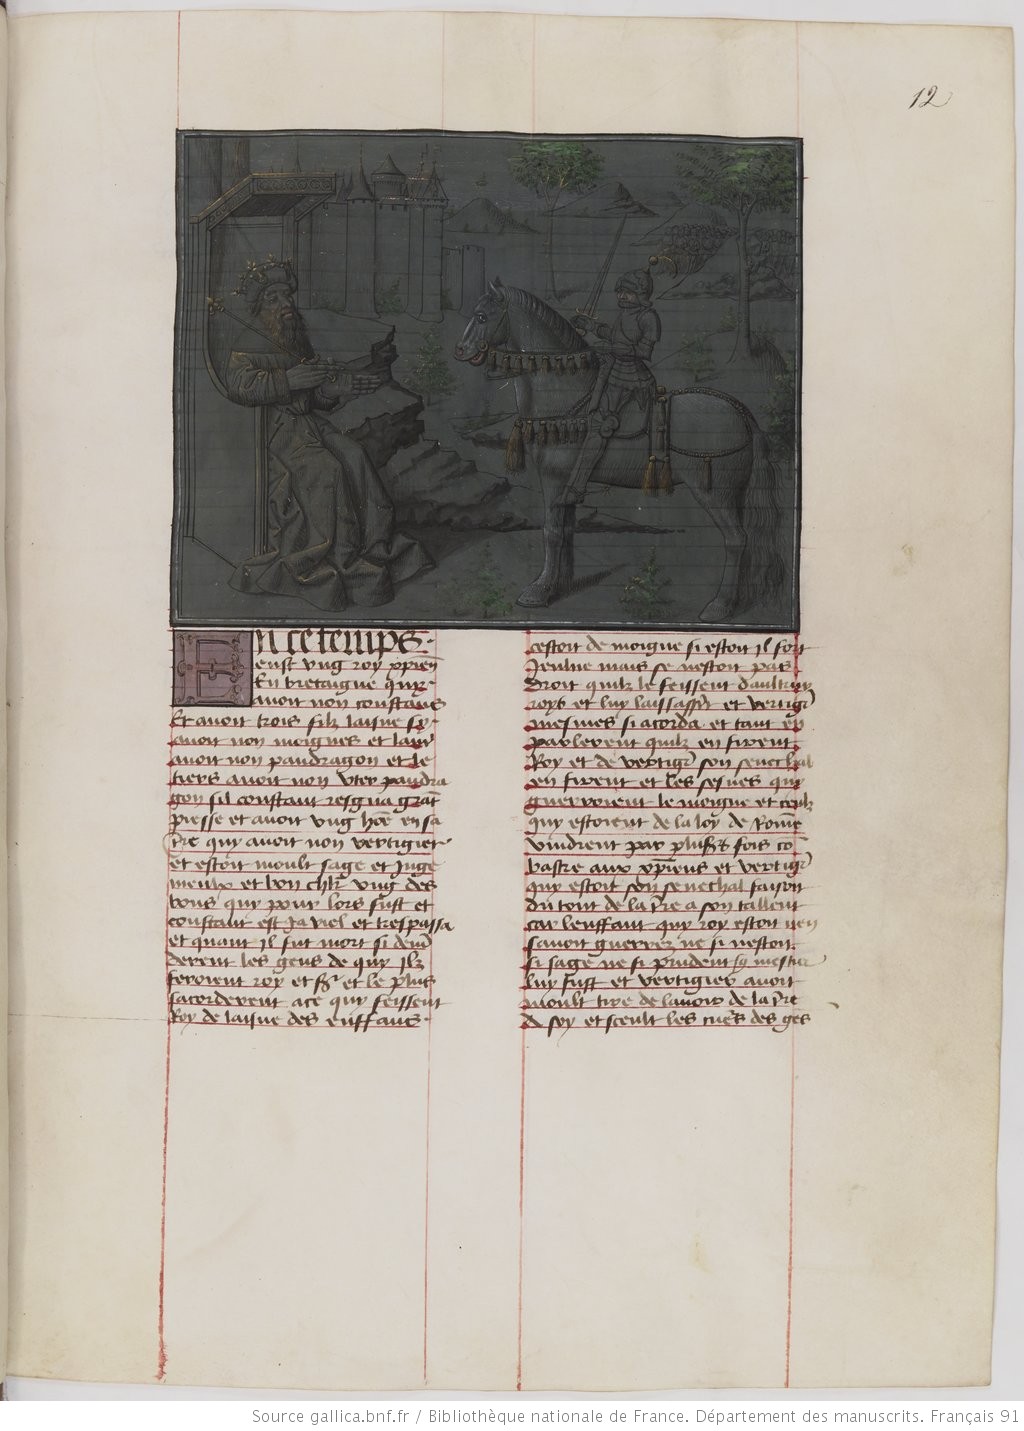 12
En ce temps
eust ung roy xpien
En bretaigne quy
avoit non constans
Et avoit trois filz laisne sy
avoit non moignes et lautre
avoit non pandragon et le
tiers avoit non uter pandra
gon sil constant resgna grat
piesse et avoit ung hoe en sa
tre quy avoit non vertigier
et estoit moult sage et Inge
nieulx et bon chlr ung des
bons quy pour lors fust et
constant est Ja viel et trespassa
et quant Il fut mort si dem
derent les gens de quy Ilz
feroient roy et sr et le plus
sacorderent a ce quy feissent
Roy de laisne des enffans
cestoit de moigne si estoit Il fort
Jeulne mais se nestoit pas
droit quilz le feissent daultruy
roys et luy laissassent et vertigr
mesmes si acorda et tant en
parlerent quilz en firent
Roy et de vertigr son senechal
en firent et les sesnes quy
guerroient le moigne et ceulx
quy estoient de la loy de Rome
vindrent par plusrs fois co
batre aux xpiens et vertigr
quy estoit son senechal faisoit
du tout de la tre a son tallent
car lenffant quy roy estoit nen
savoit guerrez ne si nestoit
si sage ne si prudent q mestier
luy fust et vertigier avoit
moult tire de lavoir de la tre
A soy et sceult les cuers des ges
Source gallica.bnf.fr / Bibliothèque nationale de France. Département des manuscrits. Français 91